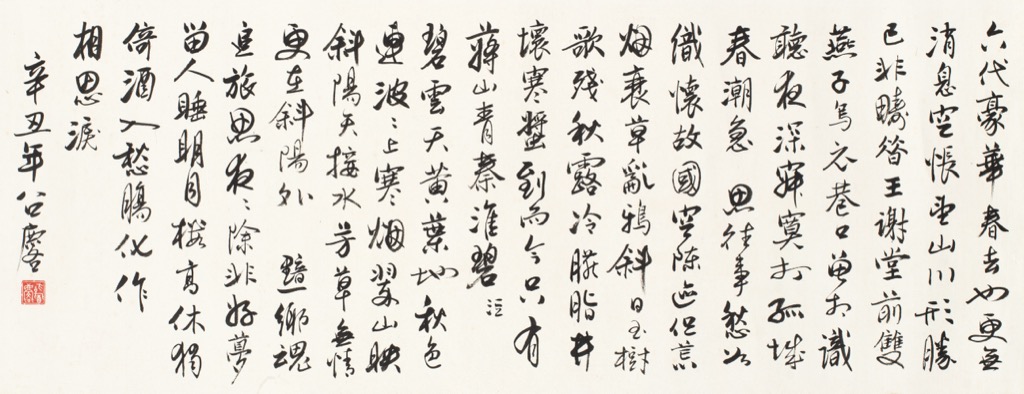 六代豪華春去也更無
消息空悵望山川形勝
已非疇昔王謝堂前雙
燕子烏衣巷口曾相識
聽夜深寂寞打孤城
春潮急 思往事愁如
織懷故國空陳迹但荒
烟衰草亂鴉斜日玉樹
歌殘秋露冷胭脂井
壞寒螿到而今只有
蔣山青秦淮碧 泣
碧雲天黃葉地秋色
連波〻上寒烟翠山映
斜陽天接水芳草無情
更在斜陽外 黯鄉魂
追旅思夜〻除非好夢
留人睡明月樓高休獨
倚酒入愁腸化作
相思淚
辛丑年公